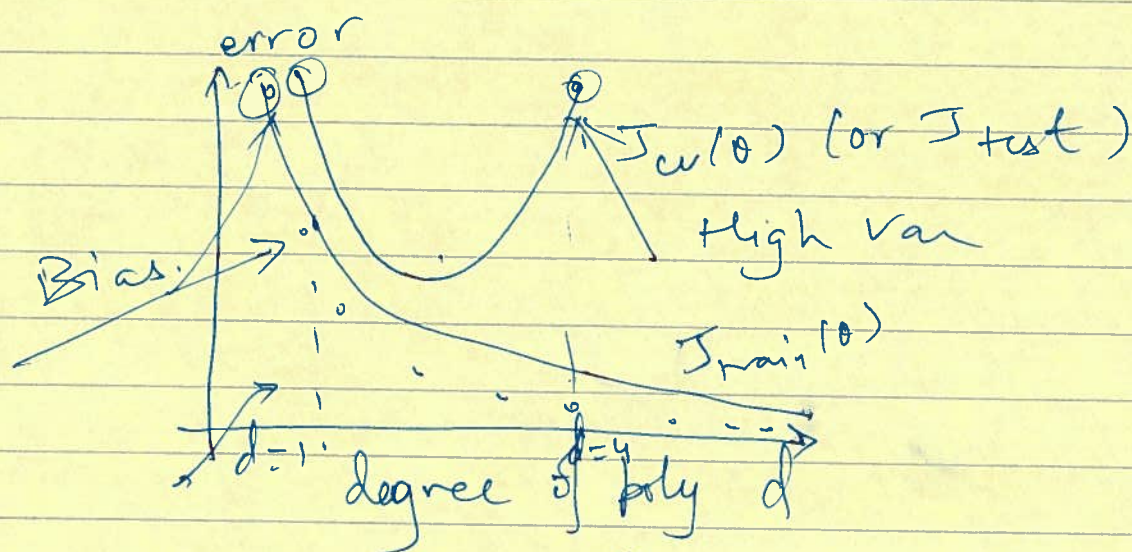 error
J cv(θ) (or J test)
High Van
Bias.
J train(θ)
d=1
d=4
degree of poly d